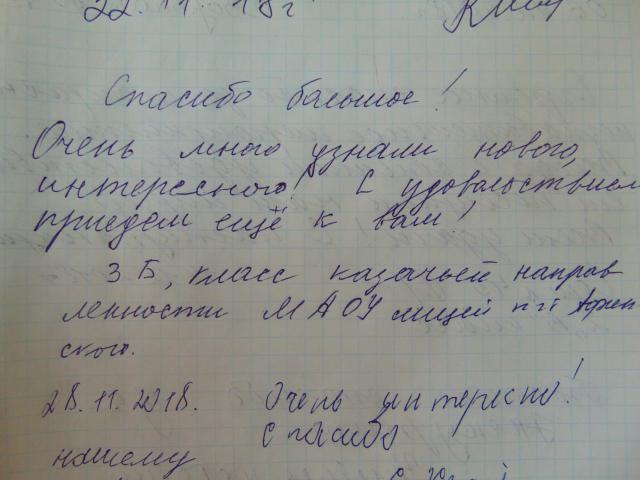 22.11.18г
Спасибо большое!
Очень много узнали нового,
интересного! С удовольствием
приедем ещё к вам!
3 Б, класс казачьей направ
ленности МАОУ лицей пгт Афип
ского.
28.11.2018. Очень интересно!
Спасибо
нашему